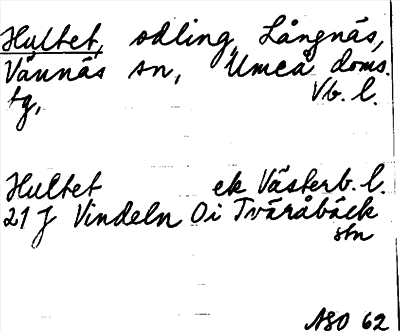 Hultet, odling, Långnäs,
Vännäs sn, Umeå doms.
tg, Vb. l.
Hultet ek Västerb. l.
21 J Vindeln Oi Tväråbäck
stn
NSO 62